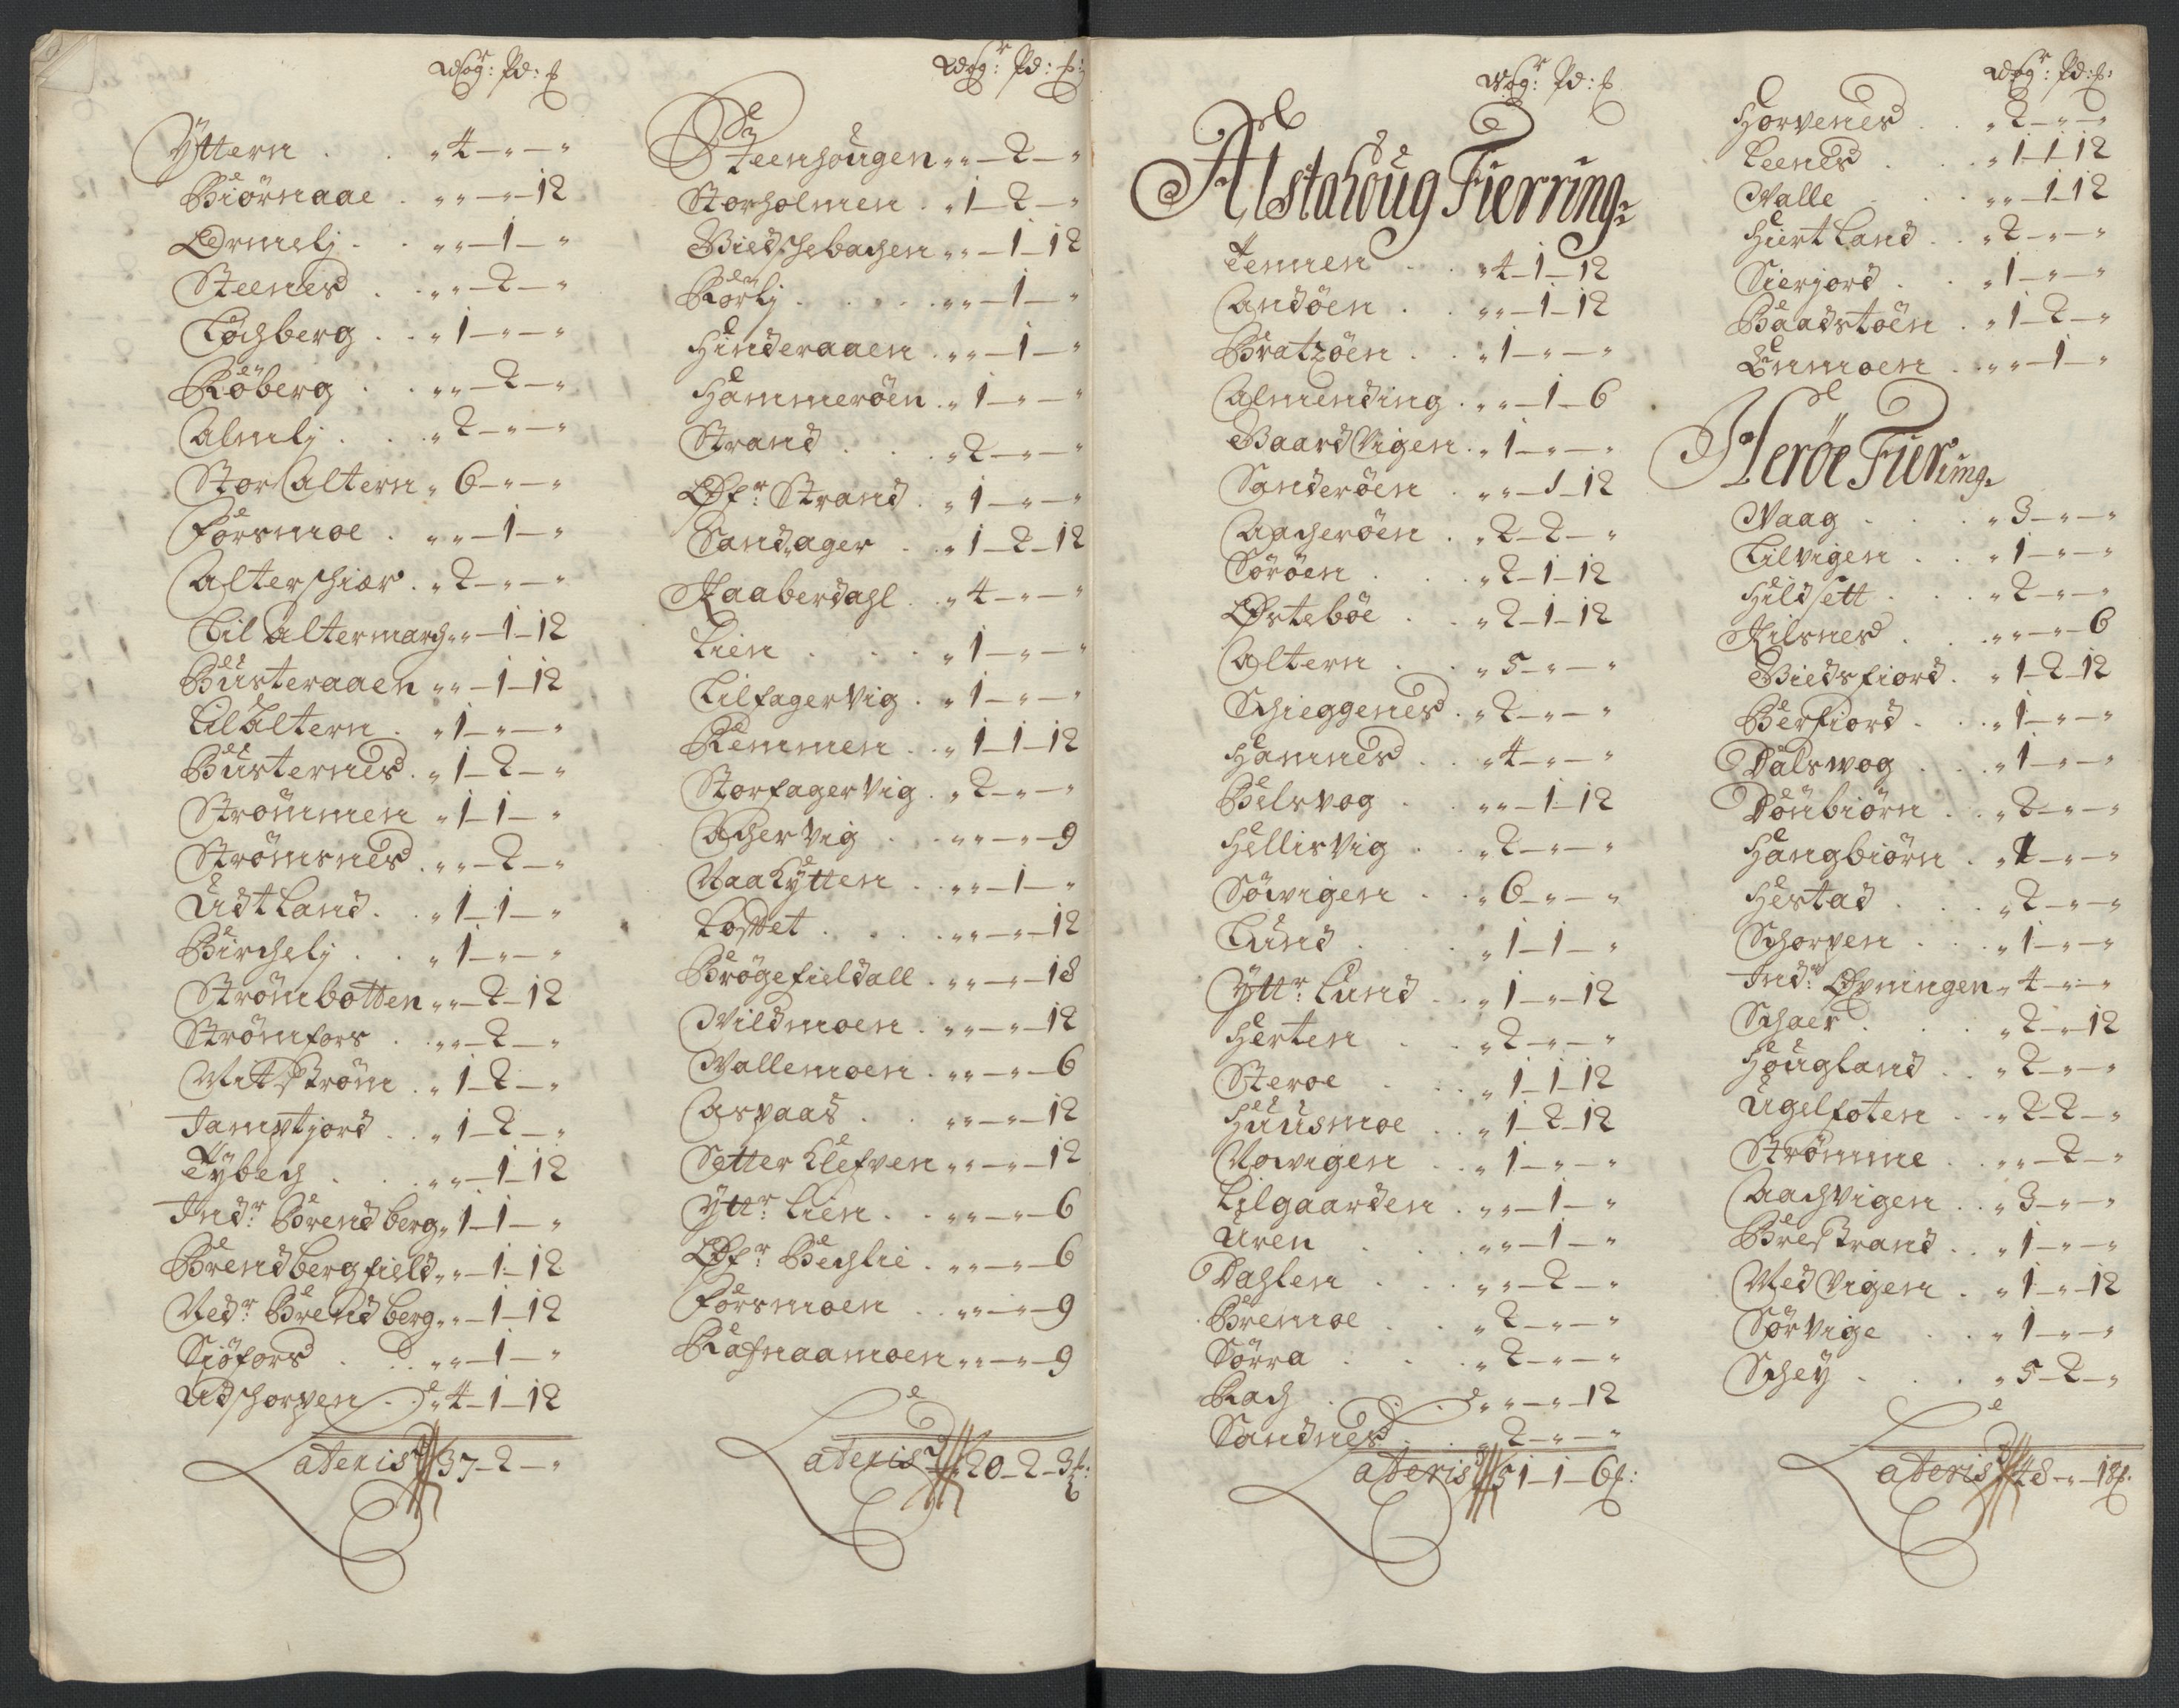 Wogr: Pd: £
Ÿttern . . „ 4 — „ — „
Biörnaae . „ „ — „ — 12
Ørmelj . . „ „ — 1 — „
Steenes . . „ „ — 2 — „
Lochberg . . „ 1 — „ — „
Röberg . . „ „ — 2 — „
Almlj . . „ 2 — „ — „
Stor Altern „ 6 — „ — „
Forsmoe . „ „ — 1 — „
Alterschiær . „ 2 — „ — „
Lil Altermarch „ „ — 1 — 12
Busteraaen „ „ — 1 — 12
Lil Altern . „ 1 — „ — „
Busternes . „ 1 — 2 — „
Strömmen „ 1 — 1 — „
Strömsnes . „ „ — 2 — „
Udtland . . „ 1 — 1 — „
Birchelj . . „ 1 — „ — „
Strömbotten „ „ — 2 — 12
Strömfors . „ „ — 2 — „
Mitström . „ 1 — 2 — „
Jamptjord . . „ 1 — 2 — „
Tÿbech . . „ „ — 1 — 12
Indr: Brendberg „ 1 — 1 — „
Brendbergfield „ „ — 1 — 12
Nedr: Brendberg „ „ — 1 — 12
Siöfors . . „ „ — 1 — „
Udschorpen . . „ 4 — 1 — 12
Lateris 37 — 2 — „
Wogr: Pd: £:
Steenhougen „ „ — 2 — „
Storholmen . „ 1 — 2 — „
Biedschebachen „ „ — 1 — 12
Rörlj . . . . „ „ — 1 — „
Hinderaaen . „ „ — 1 — „
Hammeröen . „ 1 — „ — „
Strand . . . „ 2 — „ — „
Øfr: Strand . „ 1 — „ — „
Sandager . . „ 1 — 2 — 12
Haaberdahl . „ 4 — „ — „
Lien . . . „ 1 — „ — „
Lilfagervig . „ 1 — „ — „
Remmen . . „ 1 — 1 — 12
Storfagervig . „ 2 — „ — „
Achervig . . „ „ — „ — 9
Naakÿtten . . „ „ — 1 — „
Lofftet . . . . „ „ — „ — 12
Brögefieldall . „ „ — „ — 18
Vildmoen . „ „ — „ — 12
Vallemoen . „ „ — „ — 6
Aspaas . . „ „ — „ — 12
Setter Klefven „ „ — „ — 12
Ÿttr: Lien . . „ „ — „ — 6
Øfr: Bechlie . „ „ — „ — 6
Forsmoen . . „ „ — „ — 9
Rafnaamoen „ „ — „ — 9
Lateris 20 — 2 — 3 £:
Wogr: Pd: £
Alstahoug Fierring:
Tennen . . „ 4 — 1 — 12
Andöen . . „ „ — 1 — 12
Bratzöen . . „ 1 — „ — „
Almending . „ „ — 1 — 6
Baardvigen . „ 1 — „ — „
Sanderöen . „ „ — 1 — 12
Aacheröen . „ 2 — 2 — „
Söröen . . . „ 2 — 1 — 12
Østeböe . . „ 2 — 1 — 12
Altern . . „ 5 — „ — „
Schieggenes . „ 2 — „ — „
Hamnes . . „ 4 — „ — „
Belsvog . . „ „ — 1 — 12
Hellisvig . . „ 2 — „ — „
Söwigen . . „ 6 — „ — „
Lund . . . „ 1 — 1 — „
Ÿttr: Lund . . „ 1 — „ — 12
Herten . . „ 2 — „ — „
Steroe . . . „ 1 — 1 — 12
Huusmoe . . „ 1 — 2 — 12
Nowigen . . „ 1 — „ — „
Lilgaarden . „ „ — 1 — „
Uren . . . „ „ — 1 — „
Dahlen . . . „ „ — 2 — „
Bremoe . . „ 2 — „ — „
Sörra . . . „ 2 — „ — „
Rach . . . „ „ — „ — 12
Sandnes . . „ 2 — „ — „
Lateris 51 — 1 — 6 £:
Wogr: Pd: £:
Horvenes . . „ 2 — „ — „
Leenes . . . „ 1 — 1 — 12
Valle . . . „ „ — 1 — 12
Hiertland . . „ 2 — „ — „
Sierjord . . „ 1 — „ — „
Baadstoen . „ 1 — 2 — „
Enmoen . „ „ — 1 — „
Heröe Fierring.
Vaag . . . „ 3 — „ — „
Lilvigen . . „ 1 — „ — „
Hildsett . . . „ 2 — „ — „
Hilsnes . . . „ „ — „ — 6
Biedsfiord . „ 1 — 2 — 12
Berfiord . . „ 1 — „ — „
Dalswog . . „ 1 — „ — „
Dönbiörn . . „ 2 — „ — „
Hangbiörn . „ 1 — „ — „
Hestad . . . „ 2 — „ — „
Schorpen . . „ 1 — „ — „
Indr: Øvningen „ 4 — „ — „
Schaer . . . „ 2 — „ — 12
Hougland . . „ 2 — „ — „
Ugelfoten . . „ 2 — 2 — „
Strömme . . „ „ — 2 — „
Aachvigen . . „ 3 — „ — „
Brestrand . . „ 1 — „ — „
Medvigen . „ 1 — „ — 12
Sörvige . . „ 1 — „ — „
Schey . . . „ 5 — 2 — „
Lateris 48 — „ — 18 £.